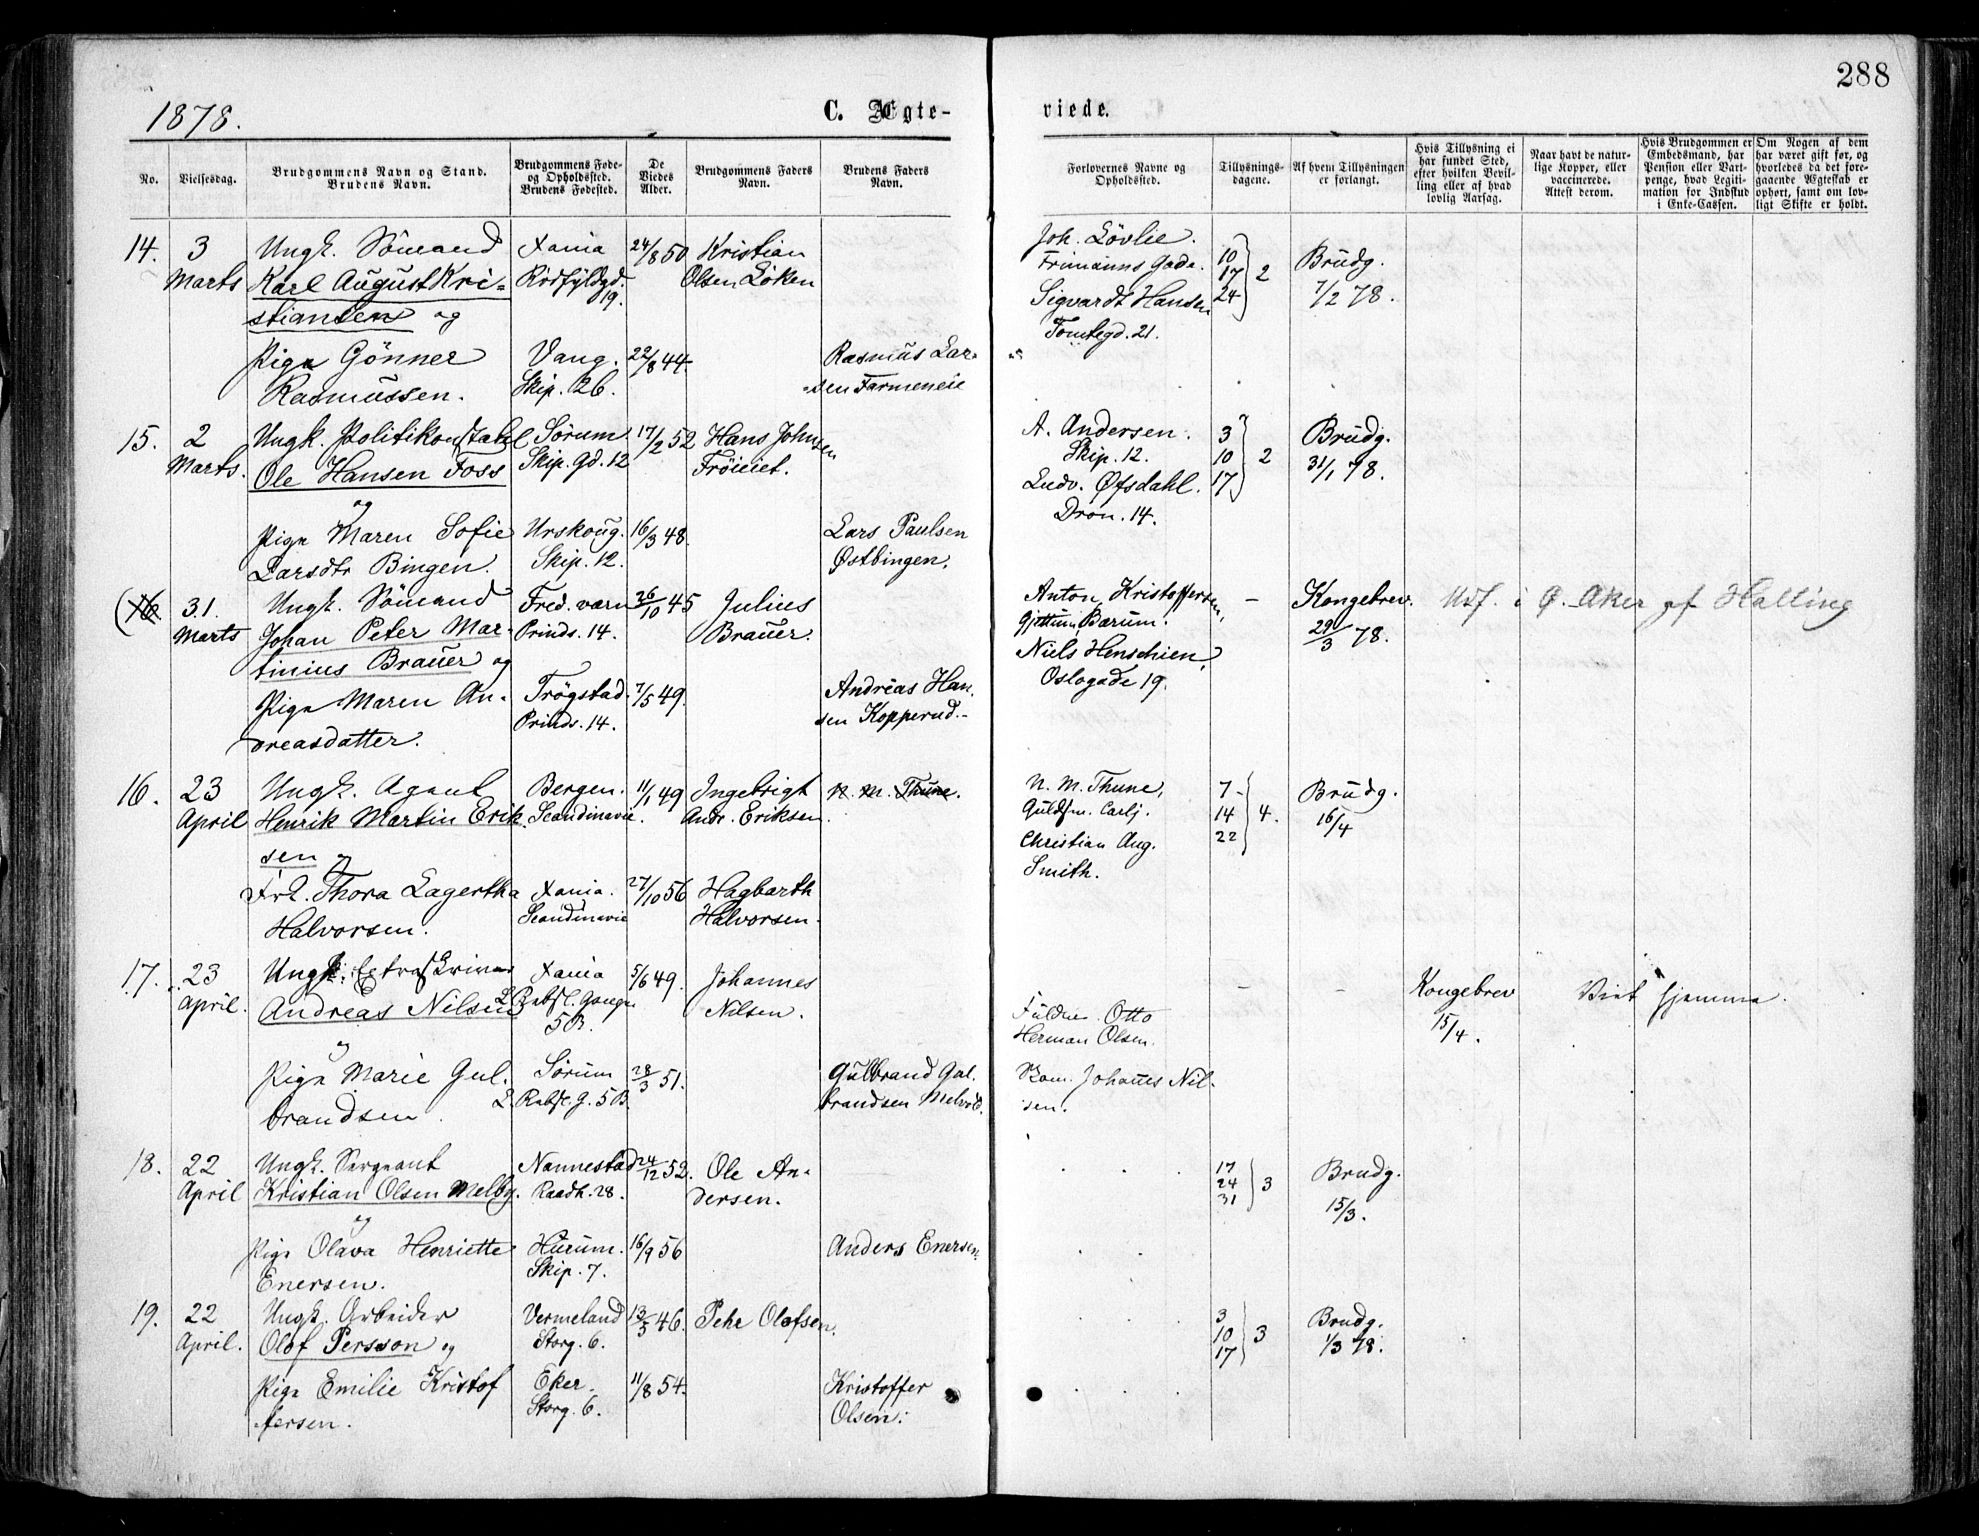 288
1878.
C. Ægte-
viede.
No.
Vielsesdag.
Brudgommens Navn og Stand.
Brudens Navn.
Brudgommens Føde-
og Opholdssted.
Brudens Fødested.
De
Viedes
Alder.
Brudgommens Faders
Navn.
Brudens Faders
Navn.
Forlovernes Navne og
Opholdssted.
Tillysnings-
dagene.
Af hvem Tillysningen
er forlangt.
Hvis Tillysning ei
har fundet Sted,
efter hvilken Bevil-
ling eller af hvad
lovlig Aarsag.
Naar havt de natur-
lige Kopper, eller
vaccinerede.
Attest derom.
Hvis Brudgommen er
Embedsmand, har
Pension eller Vart-
penge, hvad Legiti-
mation for Indskud
i Enke-Cassen.
Om Nogen af dem
har været gift før, og
hvorledes da det fore-
gaaende Ægteskab er
ophørt, samt om lov-
ligt Skifte er holdt.
14. 3 Ungk. Sömand Xania 24/8 50 Kristian Joh. Lövlie. 10
Marts Karl August Kri- Olsen Löken Frimanns Gade. 17 2 Brudg.
19. Sigvardt Hansen 24 7/2 78.
stiansen og Tomtegd. 21.
Pige Gönner Vang. 22/8 44 Rasmus Lar-
Rasmussen. Skip. 26. sen Farmeneie
15. 2 Ungk. Politikonstabel Sörum 17/2 52 Hans Johnsen A. Andersen. 3 Brudg.
Marts. Ole Hansen Foss Skip. gd. 12 Fröieiet. Skip. 12. 10 2 31/1 78.
og Ludv. Øfsdahl. 17
Dron. 14.
Pige Maren Sofie Urskoug. 16/3 48. Lars Paulsen
Larsdtr Bingen. Skip. 12. Østbingen.
(16 31. Ungk. Sömand Fred. værn 26/10 45 Julius Anton Kristoffersen, - Kongebrev. Udf. i Ø. Aker af Halling
Marts Johan Peter Mar- Prinds. 14. Brauer. Gjettum, Bærum. 29/3 78.
tinius Brauer og Niels Henschien,
Oslogade 19.
Pige Maren An- Trögstad. 7/5 49. Andreas Han-
dreasdatter. Prinds. 14. sen Kopperud.-
16. 23 Ungk. Agent Bergen. 11/1 49 Ingebrigt N. M. Thune. N. M. Thune, 7 Brudg.
April Henrik Martin Erik- Scandinavie. Andr. Eriksen. Guldsm. Carlj. 14 4. 16/4
sen og Christian Aug. 22
Smith.
Frk. Thora Lagertha Xania. 27/10 56 Hagbarth
Halvorsen. Scandinavie Halvorsen.
17. 23 Ungk. Extraskriver Xania 5/6 49. Johannes - - Kongebrev Viet hjemme.
April. Andreas Nilsen Nilsen. Otto 15/4.
5 B. Herman Olsen.
og
Pige Marie Gul- Sörum 28/3 51. Gulbrand Gul- Johannes Nil-
brandsen. 5 B. brandsen Melvold. sen.
18. 22 Ungk. Sergeant Nannestad 24/12 52. Ole An- 17 Brudg.
April Kristian Olsen Melby. Raadh. 28. dersen. 24 3
31 15/3.
og
Pige Olava Henriette Hurum. 16/9 56 Anders Enersen.
Enersen. Skip. 7.
19. 22 Ungk. Arbeider Vermeland 13/3 46. Pehr Olofsen. 3 Brudg.
April. Olof Persson og Storg. 6. 10 3 1/3 78.
17
Pige Emilie Kristof- Eker. 11/8 54. Kristoffer
fersen. Storg. 6. Olsen.